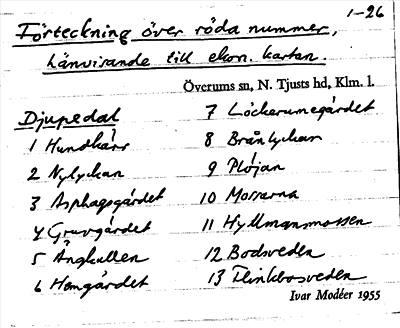 1-26
Förteckning över röda nummer,
hänvisande till ekon. kartan.
Överums sn, N. Tjusts hd, Klm. l.
Djupedal
1 Hundkärr
2 Nylyckan
3 Asphagsgärdet
4 Gruvgärdet
5 Ängkullen
6 Homgärdet
7 Löckerumsgärdet
8 Brånlyckan
9 Plöjan
10 Mossarna
11 Hyllmansmossen
12 Bodsveden
13 Flinkbosveden
Ivar Modéer 1955